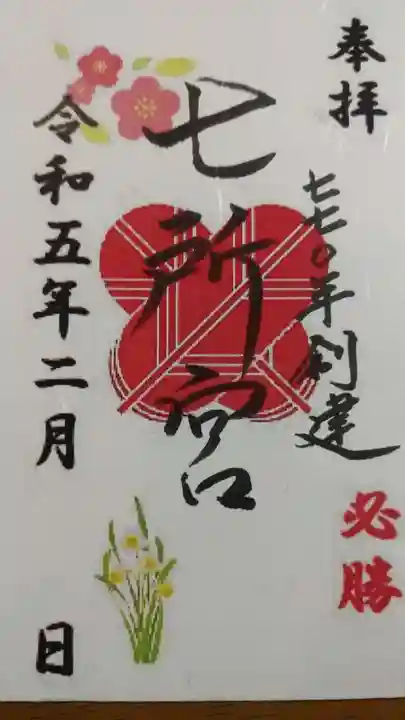 奉拝
七七〇年創建
必勝
七所宮
令和五年二月 日